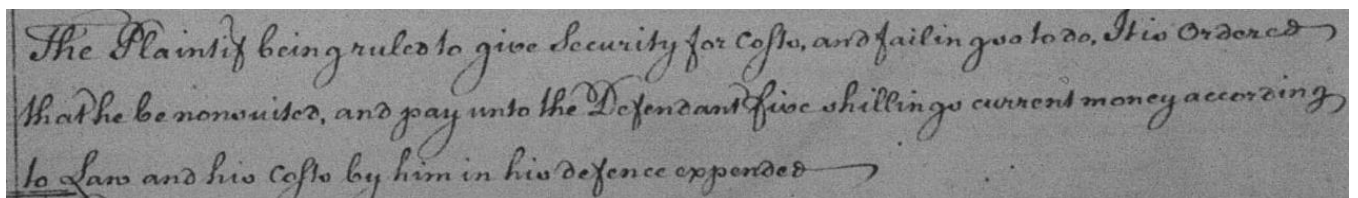 The Plaintif being ruled to give Security for Costs, and failing so to do, It is Ordered
that he be nonsuited, and pay unto the Defendant five shillings current money according
to Law and his Costs by him in his defence expended